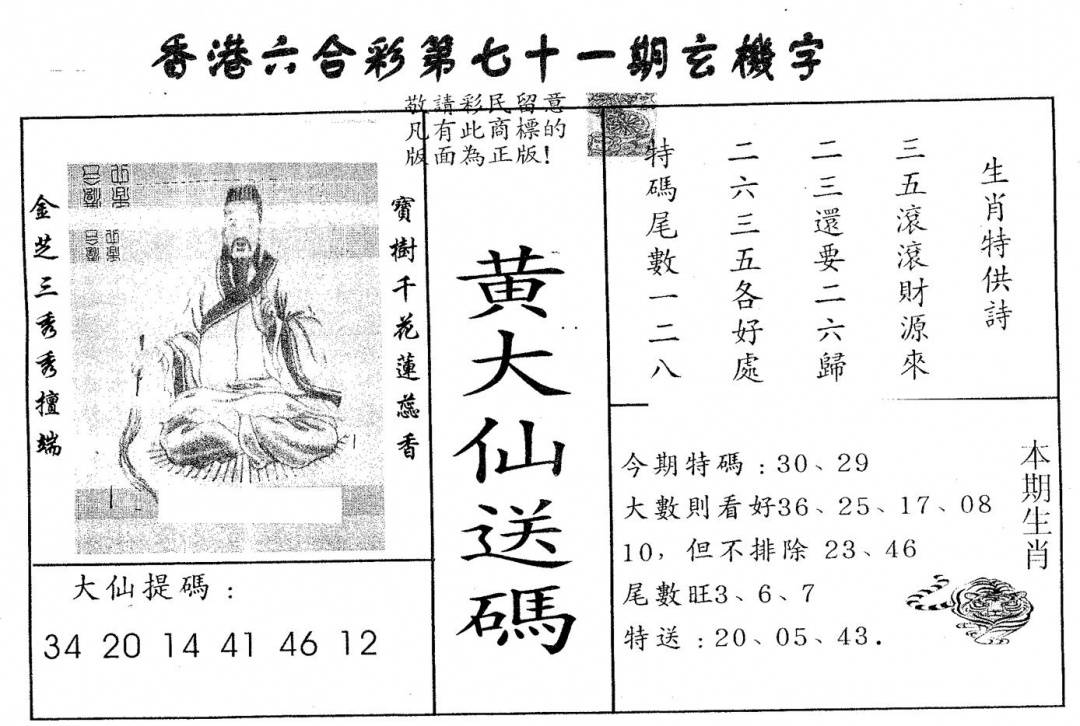 香港六合彩第七十一期玄機字
敬請彩民留意
凡有此商標的
版面為正版!
寶樹千花蓮蕊香
金芝三秀秀擅端
大仙提碼：
34 20 14 41 46 12
黃大仙送碼
生肖特供詩
三五滾滾財源來
二三還要二六歸
二六三五各好處
特碼尾數一二八
本期生肖
今期特碼：30、29
大數則看好36、25、17、08
10，但不排除 23、46
尾數旺3、6、7
特送：20、05、43.